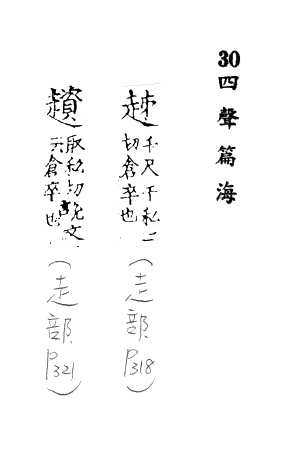 30四聲篇海
𧺼 千尺千私二
切倉卒也
(走部
P318)
趲 取私切說文
云倉卒也
(走部
P321)